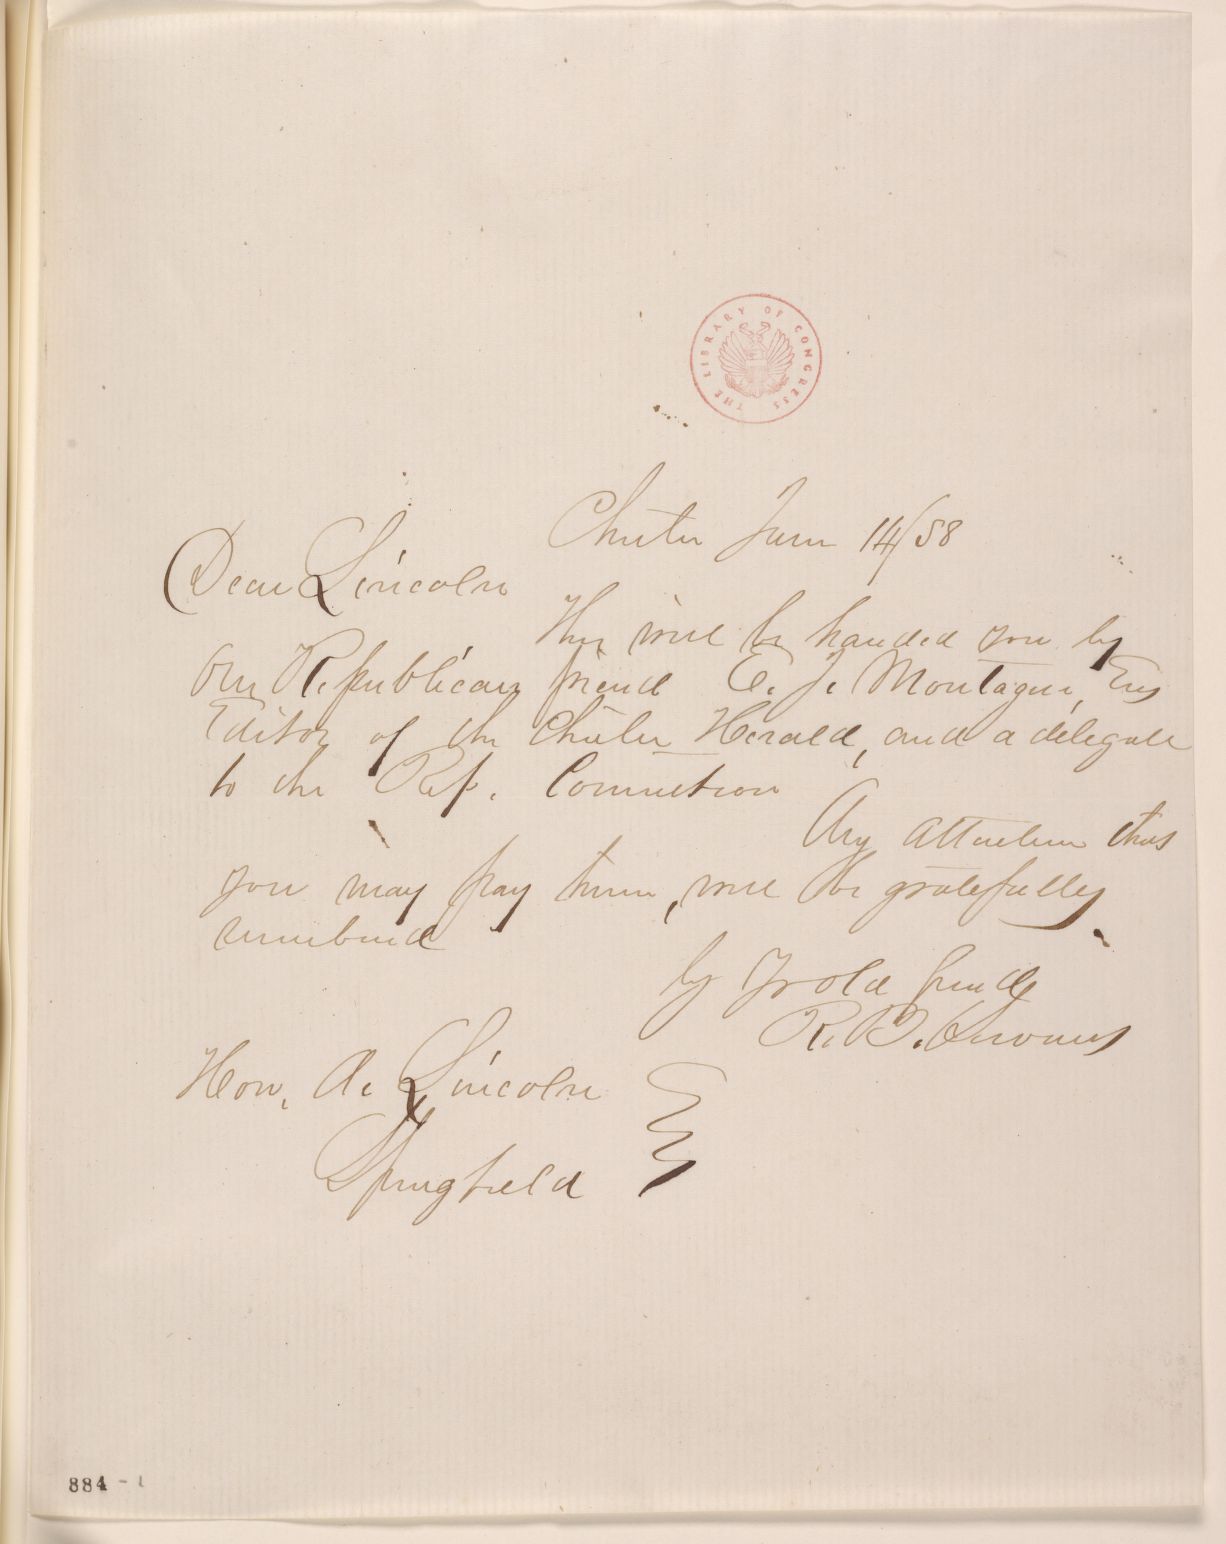 THE LIBRARY OF CONGRESS
Chester June 14/58
Dear Lincoln
This will be handed you by
our Republican friend E. J. Montague, Esq
Editor of the Chester Herald, and a delegate
to the Rep. Convention
Any attention that
you may pay him, will be gratefully
remembered
by Yr old friend
R. B.
Hon. A. Lincoln
Springfield
884-1